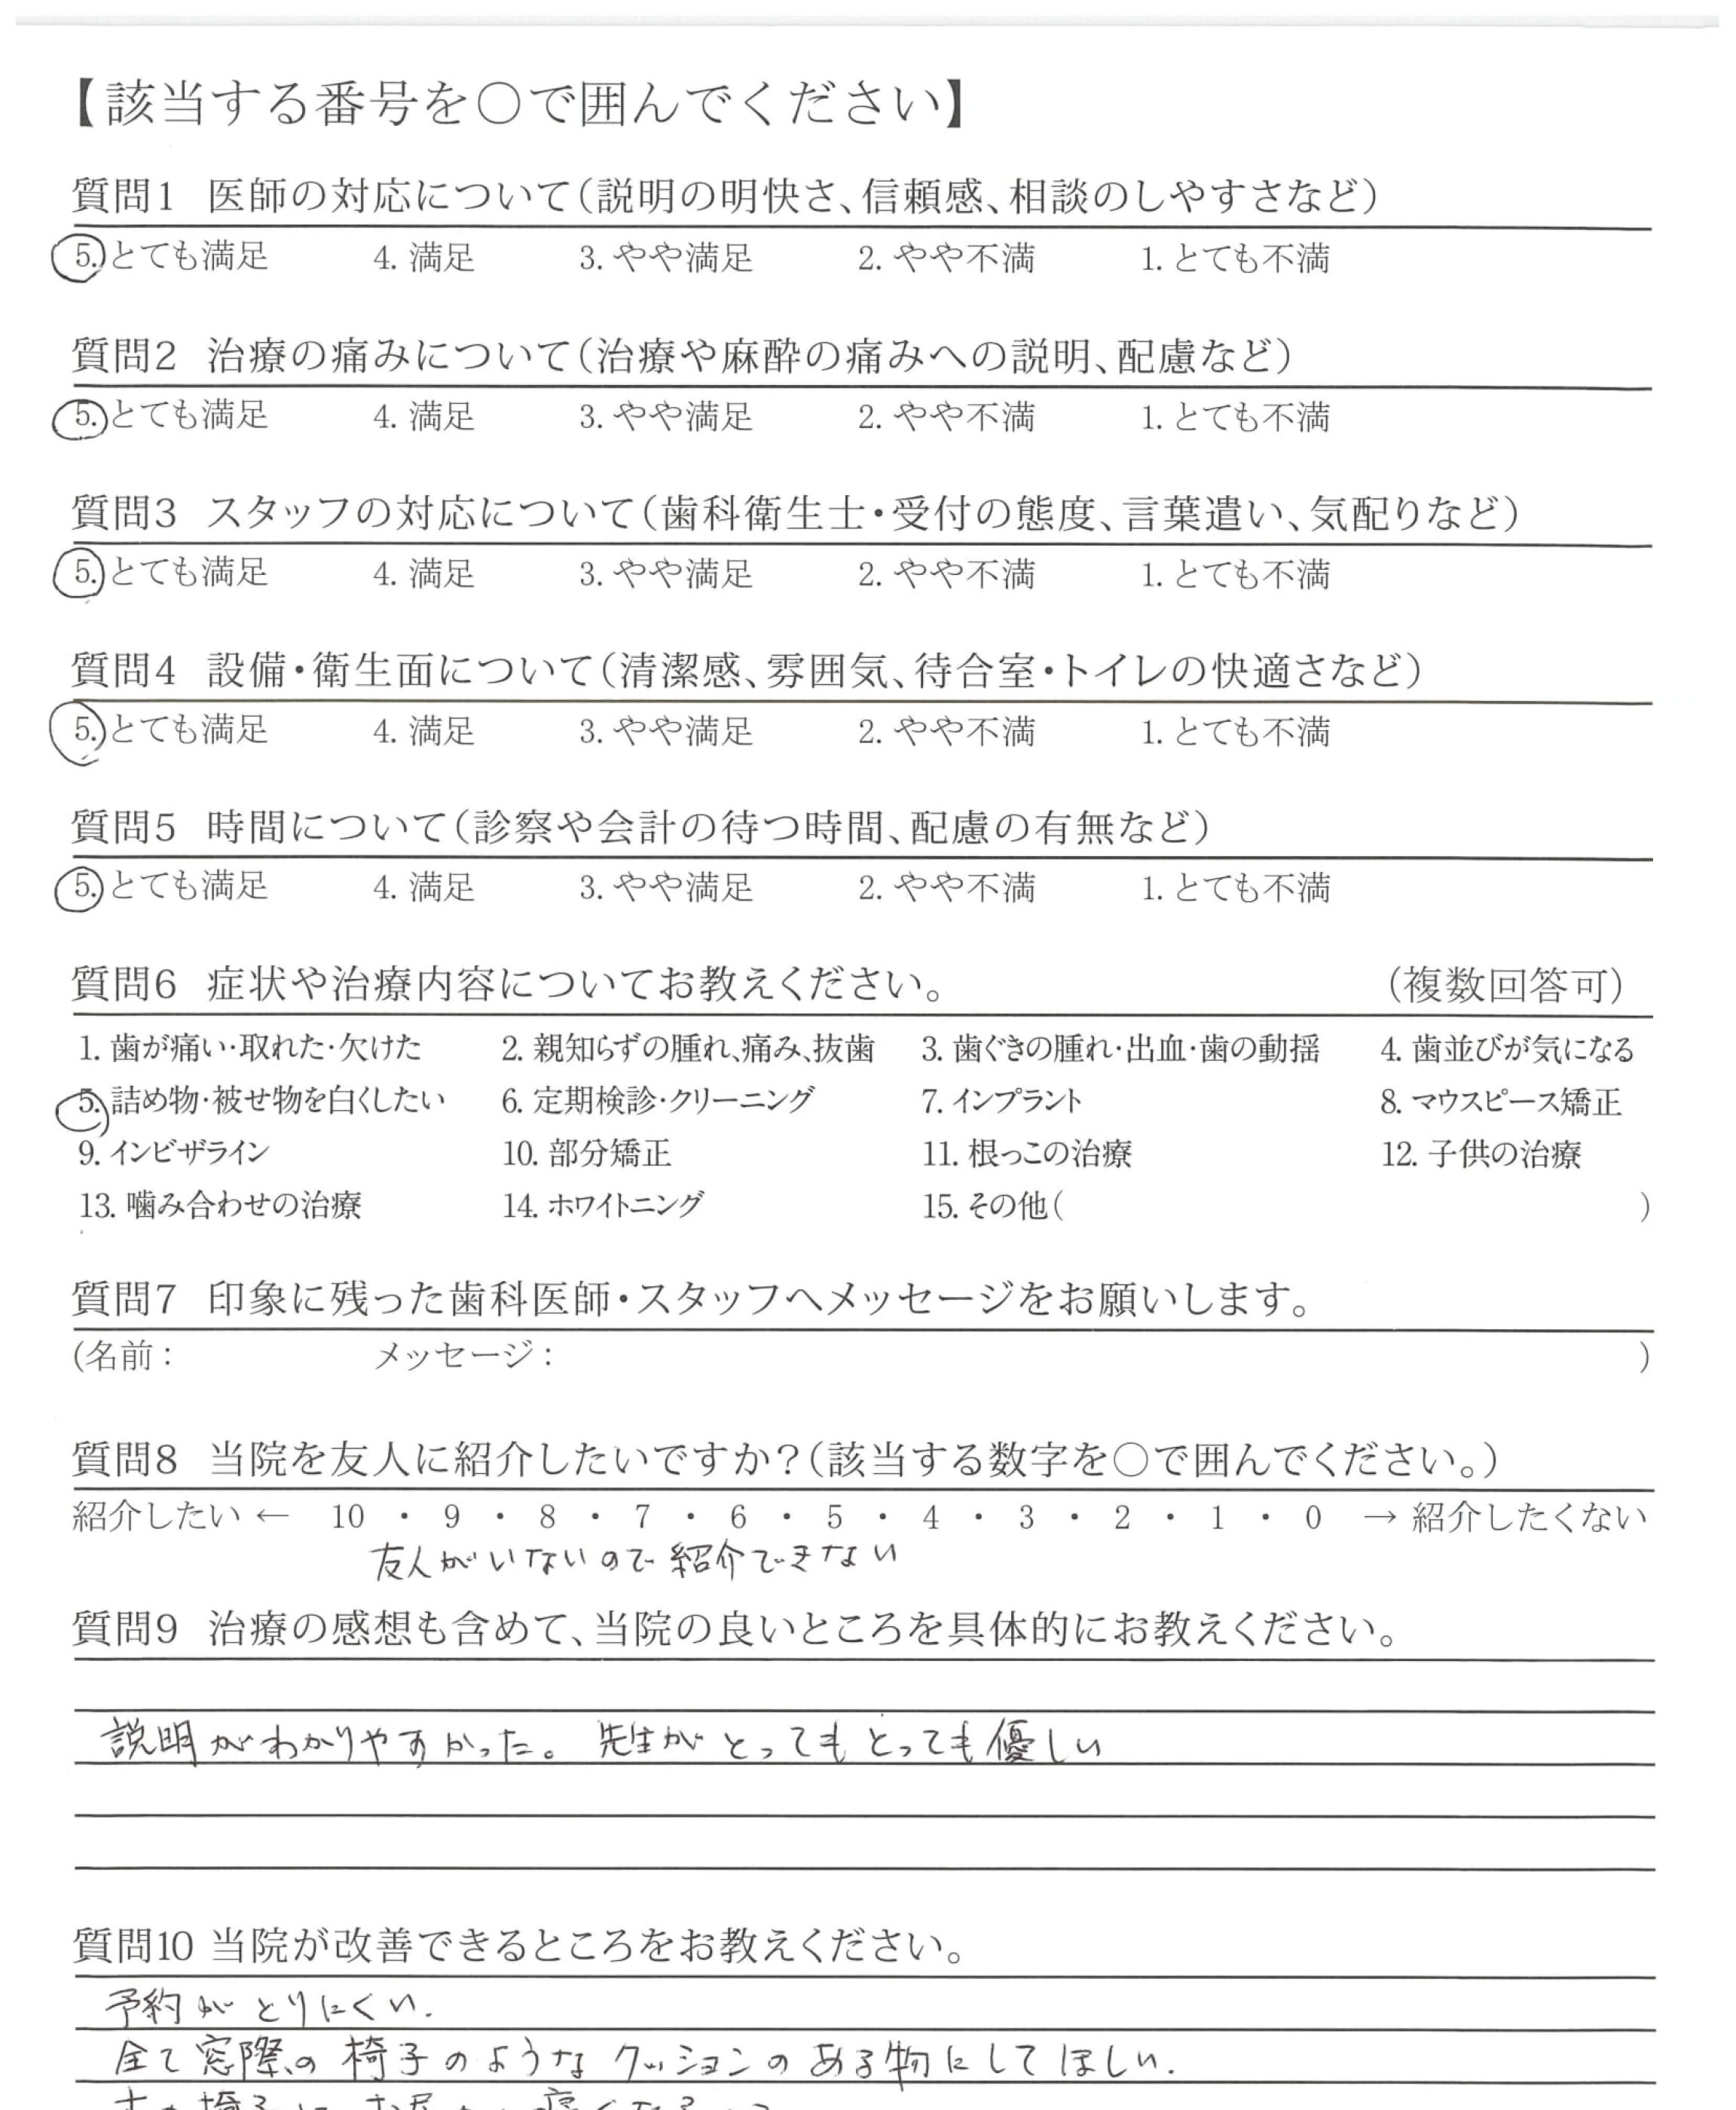 【該当する番号を○で囲んでください】
質問1 医師の対応について(説明の明快さ、信頼感、相談のしやすさなど)
5. とても満足 4. 満足 3. やや満足 2. やや不満 1. とても不満
質問2 治療の痛みについて(治療や麻酔の痛みへの説明、配慮など)
5. とても満足 4. 満足 3. やや満足 2. やや不満 1. とても不満
質問3 スタッフの対応について(歯科衛生士・受付の態度、言葉遣い、気配りなど)
5. とても満足 4. 満足 3. やや満足 2. やや不満 1. とても不満
質問4 設備・衛生面について(清潔感、雰囲気、待合室・トイレの快適さなど)
5. とても満足 4. 満足 3. やや満足 2. やや不満 1. とても不満
質問5 時間について(診察や会計の待つ時間、配慮の有無など)
5. とても満足 4. 満足 3. やや満足 2. やや不満 1. とても不満
質問6 症状や治療内容についてお教えください。 (複数回答可)
1. 歯が痛い・取れた・欠けた 2. 親知らずの腫れ、痛み、抜歯 3. 歯ぐきの腫れ・出血・歯の動揺 4. 歯並びが気になる
5. 詰め物・被せ物を白くしたい 6. 定期検診・クリーニング 7. インプラント 8. マウスピース矯正
9. インビザライン 10. 部分矯正 11. 根っこの治療 12. 子供の治療
13. 噛み合わせの治療 14. ホワイトニング 15. その他( )
質問7 印象に残った歯科医師・スタッフへメッセージをお願いします。
(名前: メッセージ: )
質問8 当院を友人に紹介したいですか?(該当する数字を○で囲んでください。)
紹介したい ← 10 ・ 9 ・ 8 ・ 7 ・ 6 ・ 5 ・ 4 ・ 3 ・ 2 ・ 1 ・ 0 → 紹介したくない
友人がいないので紹介できない
質問9 治療の感想も含めて、当院の良いところを具体的にお教えください。
説明がわかりやすかった。先生がとってもとっても優しい
質問10 当院が改善できるところをお教えください。
予約がとりにくい.
全て窓際の椅子のようなクッションのある物にしてほしい.